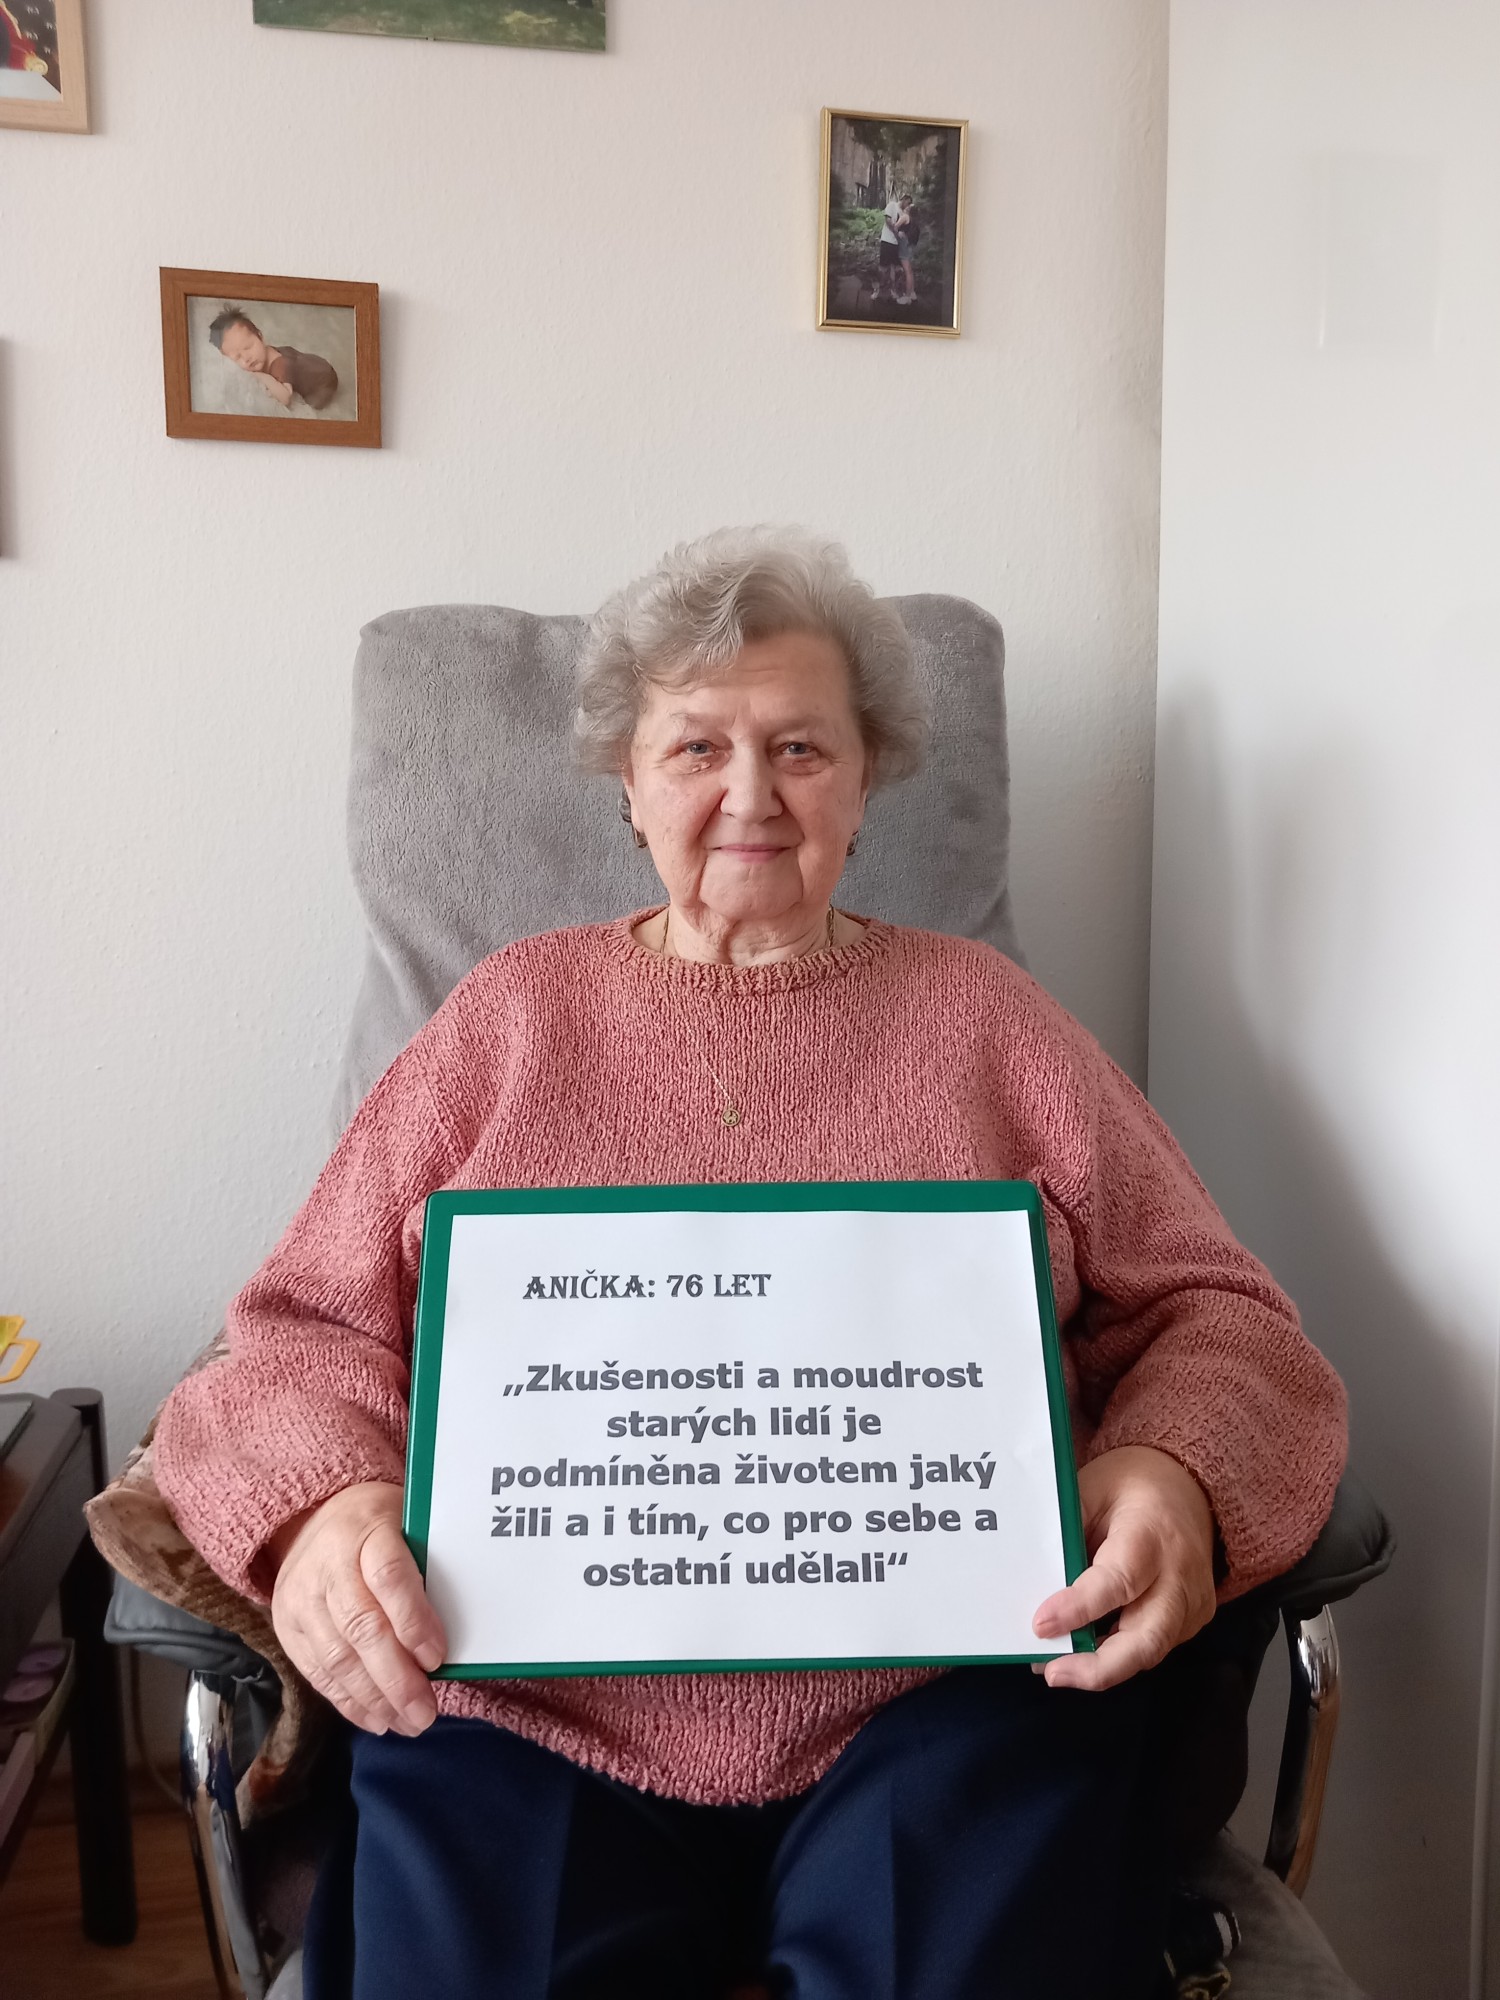 ANIČKA: 76 LET
,,Zkušenosti a moudrost
starých lidí je
podmíněna životem jaký
žili a i tím, co pro sebe a
ostatní udělali“